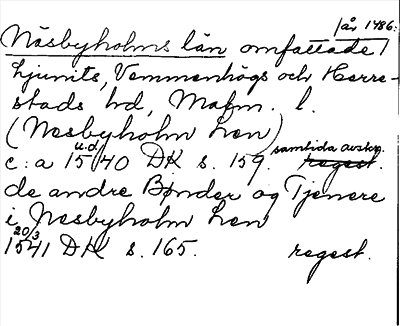 Näsbyholms län omfattade / år 1486:
Ljunits, Vemmenhögs och Herre-
stads hd, Malm. l.
(Nesbyholm Len)
c:a u.d. 1540 DK s. 159. samtida avskr. regest.
de andre Bønder og Tjenere
i Nesbyholm Len
20/3 1541 DK s. 165. regest.